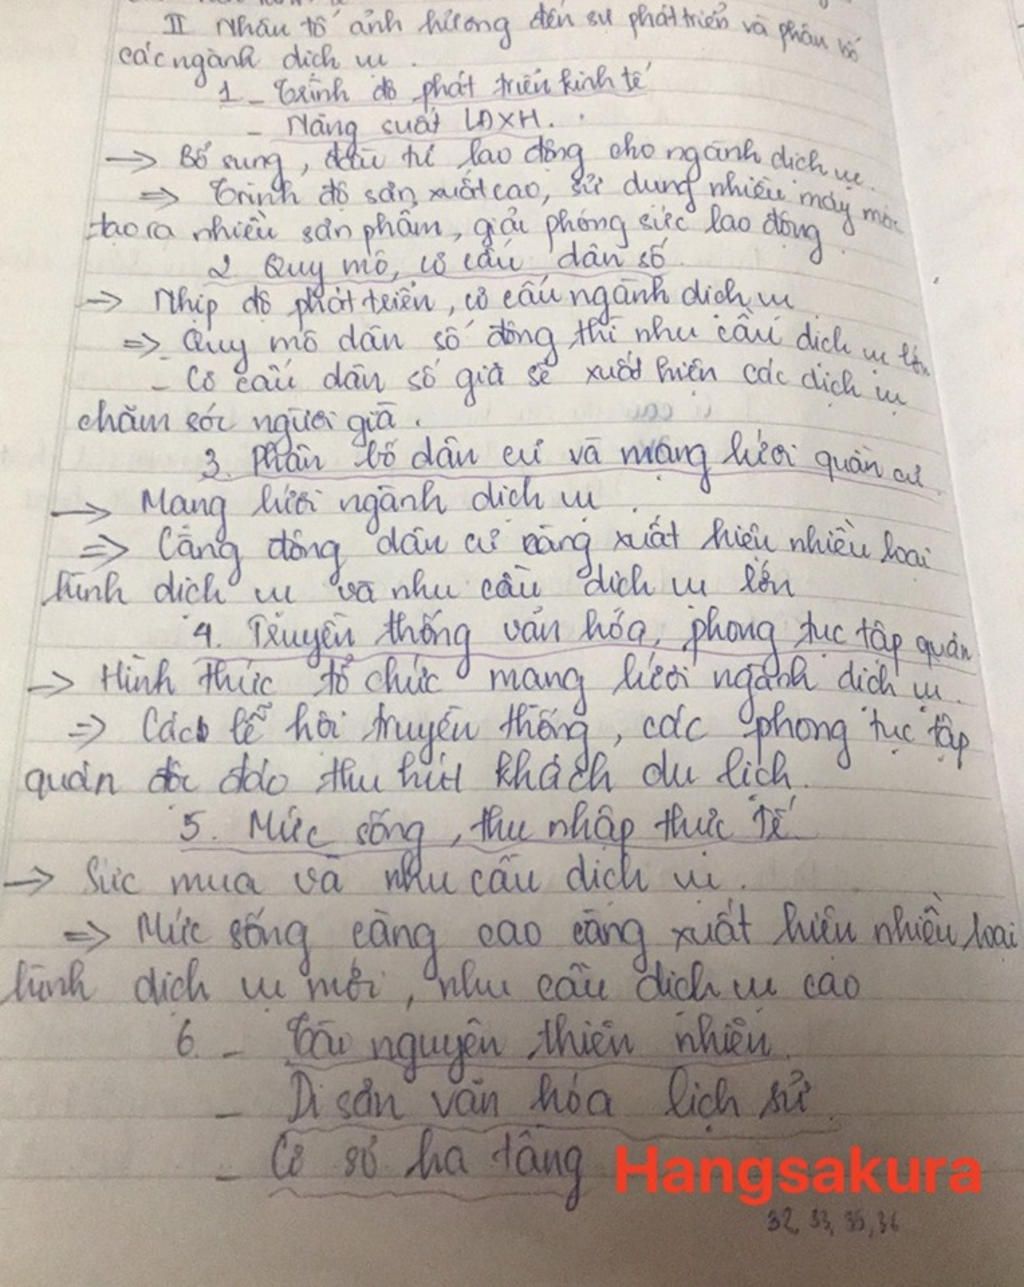 II Nhân tố ảnh hưởng đến sự phát triển và phân bố
các ngành dịch vụ.
1 - Trình độ phát triển kinh tế
- Năng suất LĐXH.
→ Bổ sung, đầu tư lao động cho ngành dịch vụ.
⇒ Trình độ sản xuất cao, sử dụng nhiều máy móc
tạo ra nhiều sản phẩm, giải phóng sức lao động
2 Quy mô, cơ cấu dân số
→ Nhịp độ phát triển, cơ cấu ngành dịch vụ
⇒ Quy mô dân số đông thì nhu cầu dịch vụ lớn
- Cơ cấu dân số già sẽ xuất hiện các dịch vụ
chăm sóc người già.
3. Phân bố dân cư và mạng lưới quần cư
→ Mạng lưới ngành dịch vụ.
⇒ Càng đông dân cư càng xuất hiện nhiều loại
hình dịch vụ và nhu cầu dịch vụ lớn
4. Truyền thống văn hóa, phong tục tập quán
→ Hình thức tổ chức mạng lưới ngành dịch vụ.
⇒ Các lễ hội truyền thống, các phong tục tập
quán độc đáo thu hút khách du lịch.
5. Mức sống, thu nhập thực tế
→ Sức mua và nhu cầu dịch vụ.
⇒ Mức sống càng cao càng xuất hiện nhiều loại
hình dịch vụ mới, nhu cầu dịch vụ cao
6. - Tài nguyên thiên nhiên
- Di sản văn hóa lịch sử.
- Cơ sở hạ tầng Hangsakura
32, 33, 35, 36